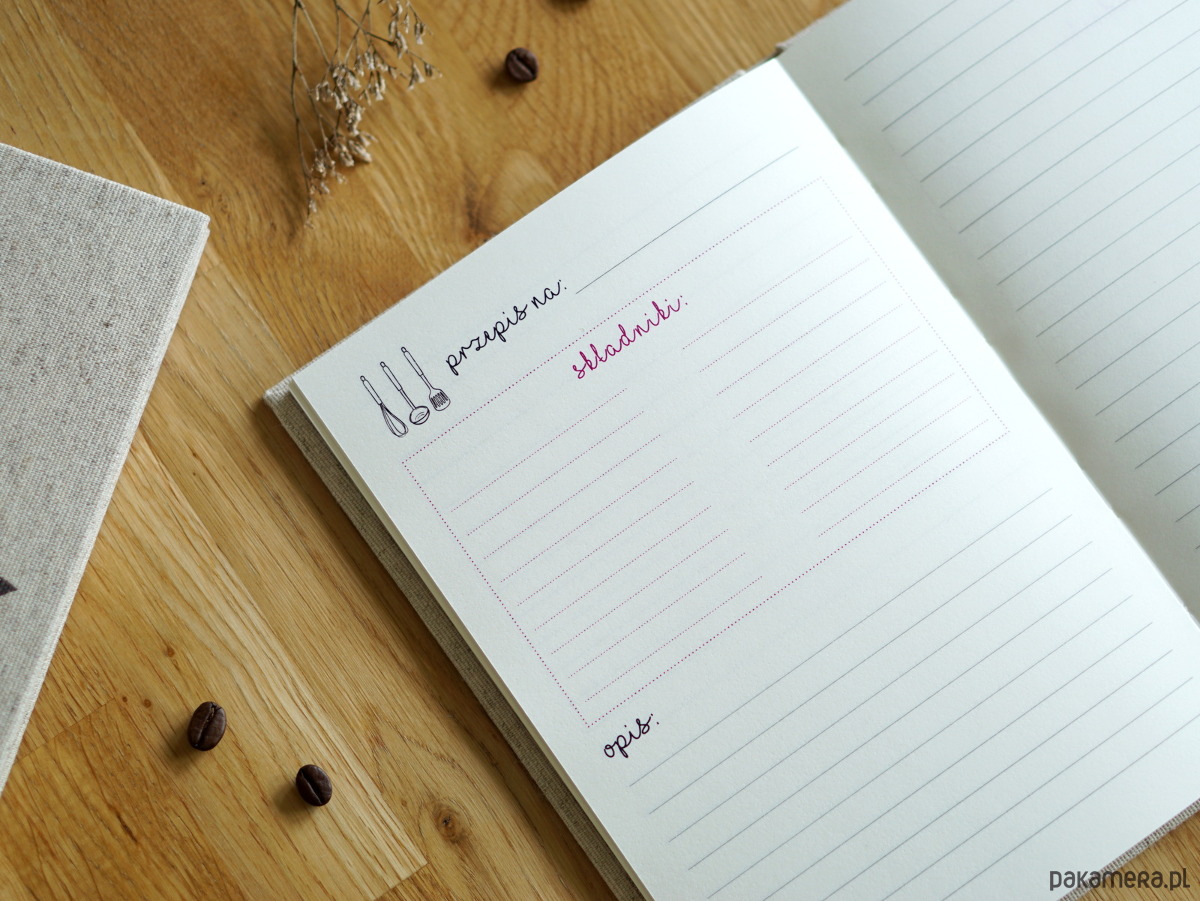 przepis na:
składniki:
opis:
pakamera.pl